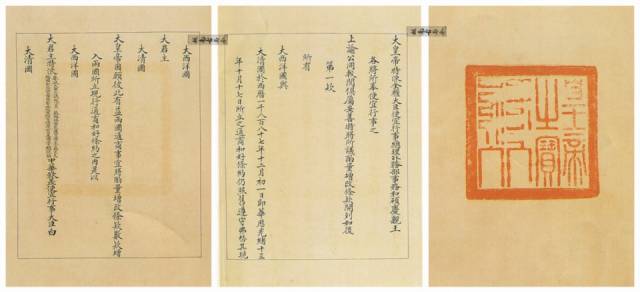 大西洋國
大君主
大清國
大皇帝因願彼此有益兩國通商事宜酌量增改條款數款增
入兩國所立現行通商和好條約之內是以
大西洋國
大君主特派
中華欽差便宜行事大臣白
大清國
大皇帝特派全權大臣便宜行事總理外務部事務和碩慶親王
各將所奉便宜行事之
上諭公同校閱俱屬妥善特將所議酌量增改條款開列如後
第一款
所有
大西洋國與
大清國於西曆一千八百八十七年十二月初一日即華曆光緒十三
年十月十七日所立之通商和好條約仍舊遵守弗替其現
皇帝
之寶